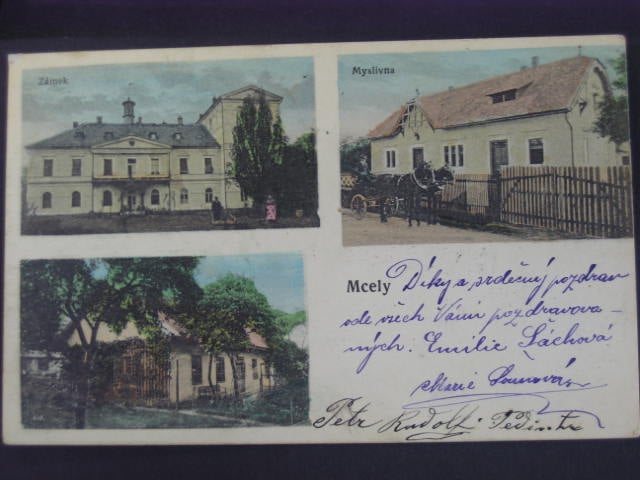 Zámek
Myslivna
Mcely
Díky a srdečný pozdrav
ode všech Vámi pozdravova-
ných. Emilie Šáchová
Marie
Petr Rudolf